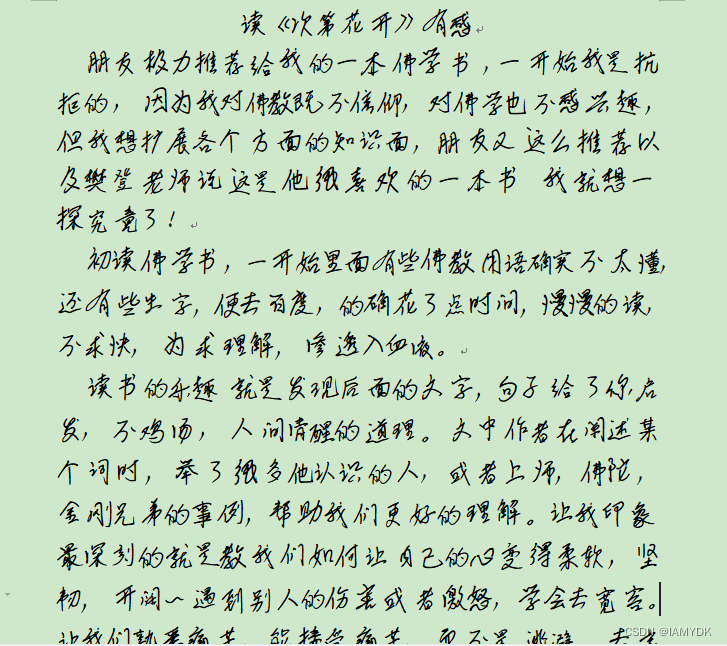 读《次第花开》有感
朋友极力推荐给我的一本佛学书，一开始我是抗
拒的，因为我对佛教既不信仰，对佛学也不感兴趣，
但我想扩展各个方面的知识面，朋友又这么推荐以
及樊登老师说这是他很喜欢的一本书 我就想一
探究竟了！
初读佛学书，一开始里面有些佛教用语确实不太懂，
还有些生字，便去百度，的确花了点时间，慢慢的读，
不求快，为求理解，渗透入血液。
读书的乐趣就是发现后面的文字，句子给了你启
发，不鸡汤，人间清醒的道理。文中作者在阐述某
个词时，举了很多他认识的人，或者上师，佛陀，
金刚兄弟的事例，帮助我们更好的理解。让我印象
最深刻的就是教我们如何让自己的心变得柔软，坚
韧，开阔～遇到别人的伤害或者激怒，学会去宽容。
让我们熟悉痛苦，能接受痛苦，而不是逃避，去
CSDN @IAMYDK